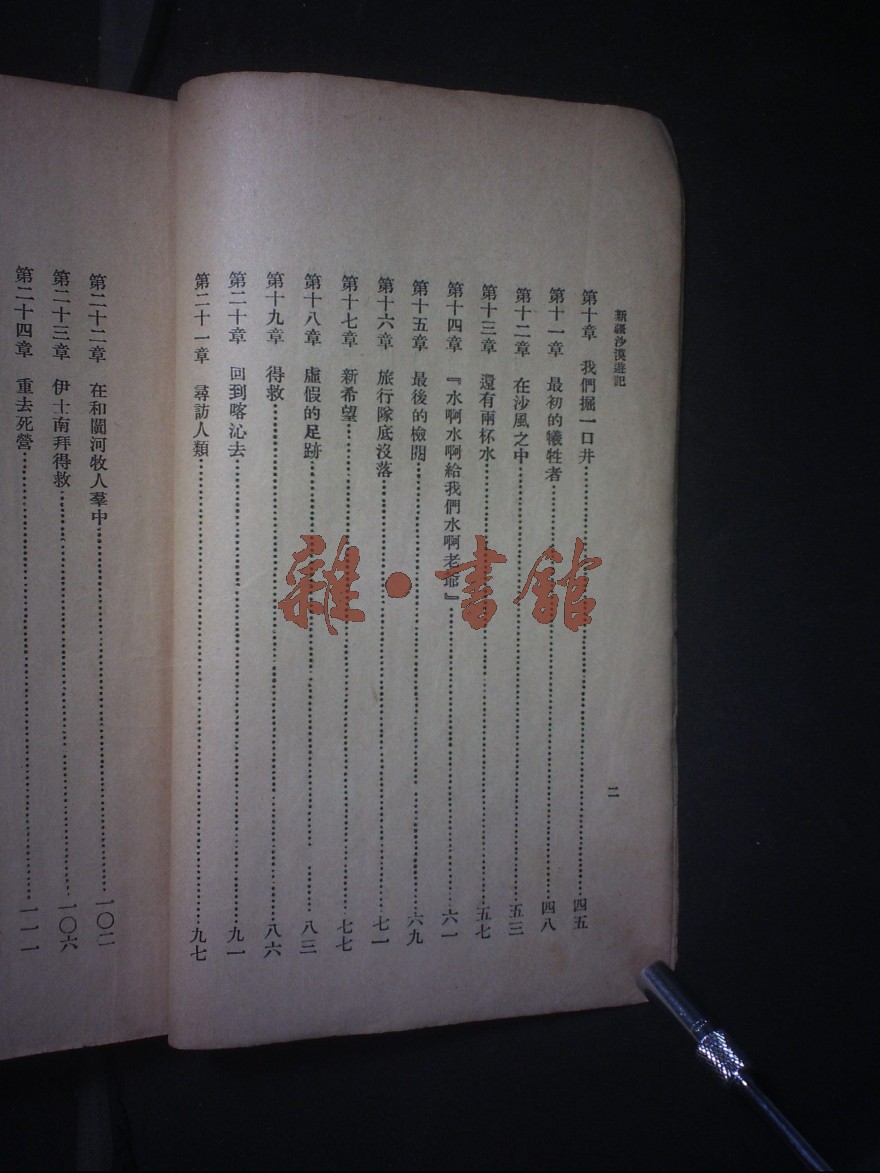 新疆沙漠遊記
二
第十章 我們掘一口井…………四五
第十一章 最初的犧牲者…………四八
第十二章 在沙風之中…………五三
第十三章 還有兩杯水…………五七
第十四章 『水啊水啊給我們水啊老爺』…………六一
第十五章 最後的檢閱…………六九
第十六章 旅行隊底沒落…………七一
第十七章 新希望…………七七
第十八章 虛假的足跡…………八三
第十九章 得救…………八六
第二十章 回到喀沁去…………九一
第二十一章 尋訪人類…………九七
第二十二章 在和闐河牧人羣中…………一〇二
第二十三章 伊士南拜得救…………一〇六
第二十四章 重去死營…………一一一
雜·書館